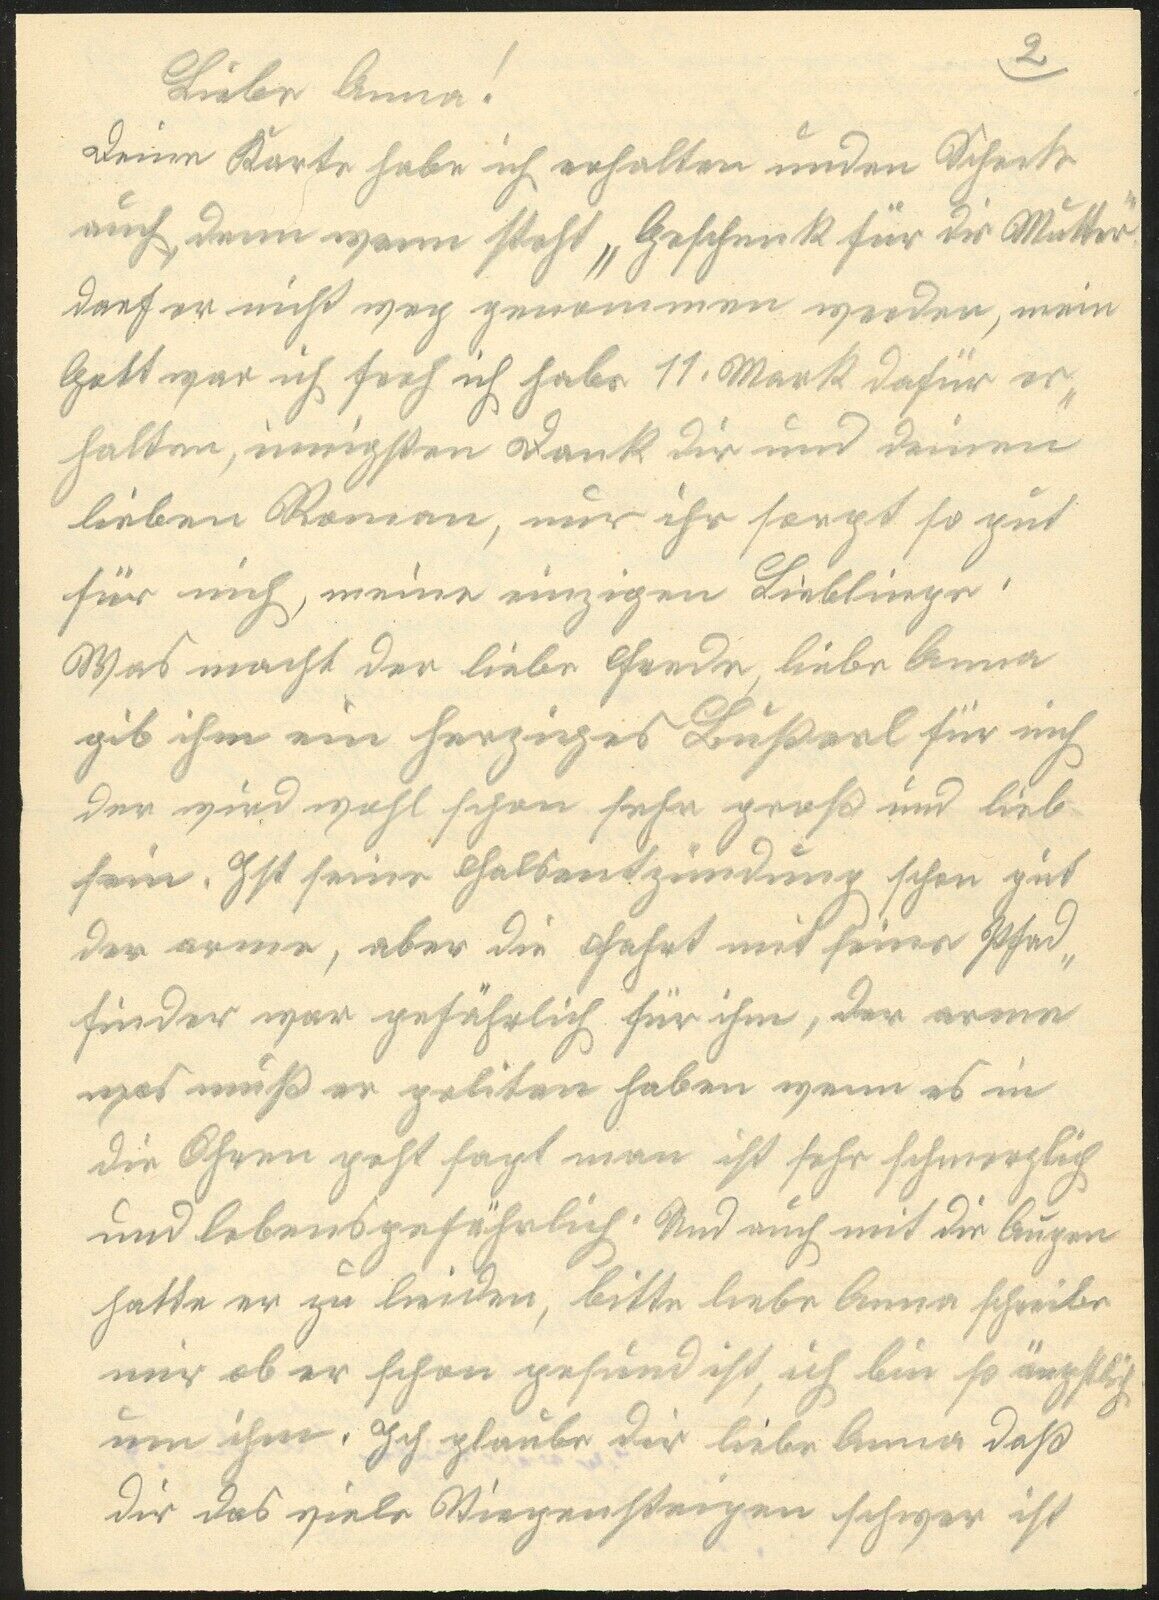 2
Liebe Anna!
Deine Karte habe ich erhalten und den Scheck
auch, denn wenn steht „Geschenk für die Mutter"
darf er nicht weg genommen werden, mein
Gott war ich froh ich habe 11. Mark dafür er„
halten, innigsten Dank dir und deinen
lieben Roman, nur ihr sorgt so gut
für mich, meine einzigen Lieblinge.
Was macht der liebe liebe Anna
gib ihm ein herziges Bußerl für mich
der wird wohl schon sehr groß und lieb
sein. Ist seine Halsentzündung schon gut
der arme, aber die Fahrt mit seine Pfad„
finder war gefährlich für ihm, der arme
was muß er geliten haben wenn es in
die Ohren geht sagt man ist sehr schmerzlich
und lebensgefährlich. Und auch mit die Augen
hatte er zu leiden, bitte liebe Anna schreibe
mir ob er schon gesund ist, ich bin so ängstlich
um ihm. Ich glaube dir liebe Anna daß
dir das viele Stiegensteigen schwer ist